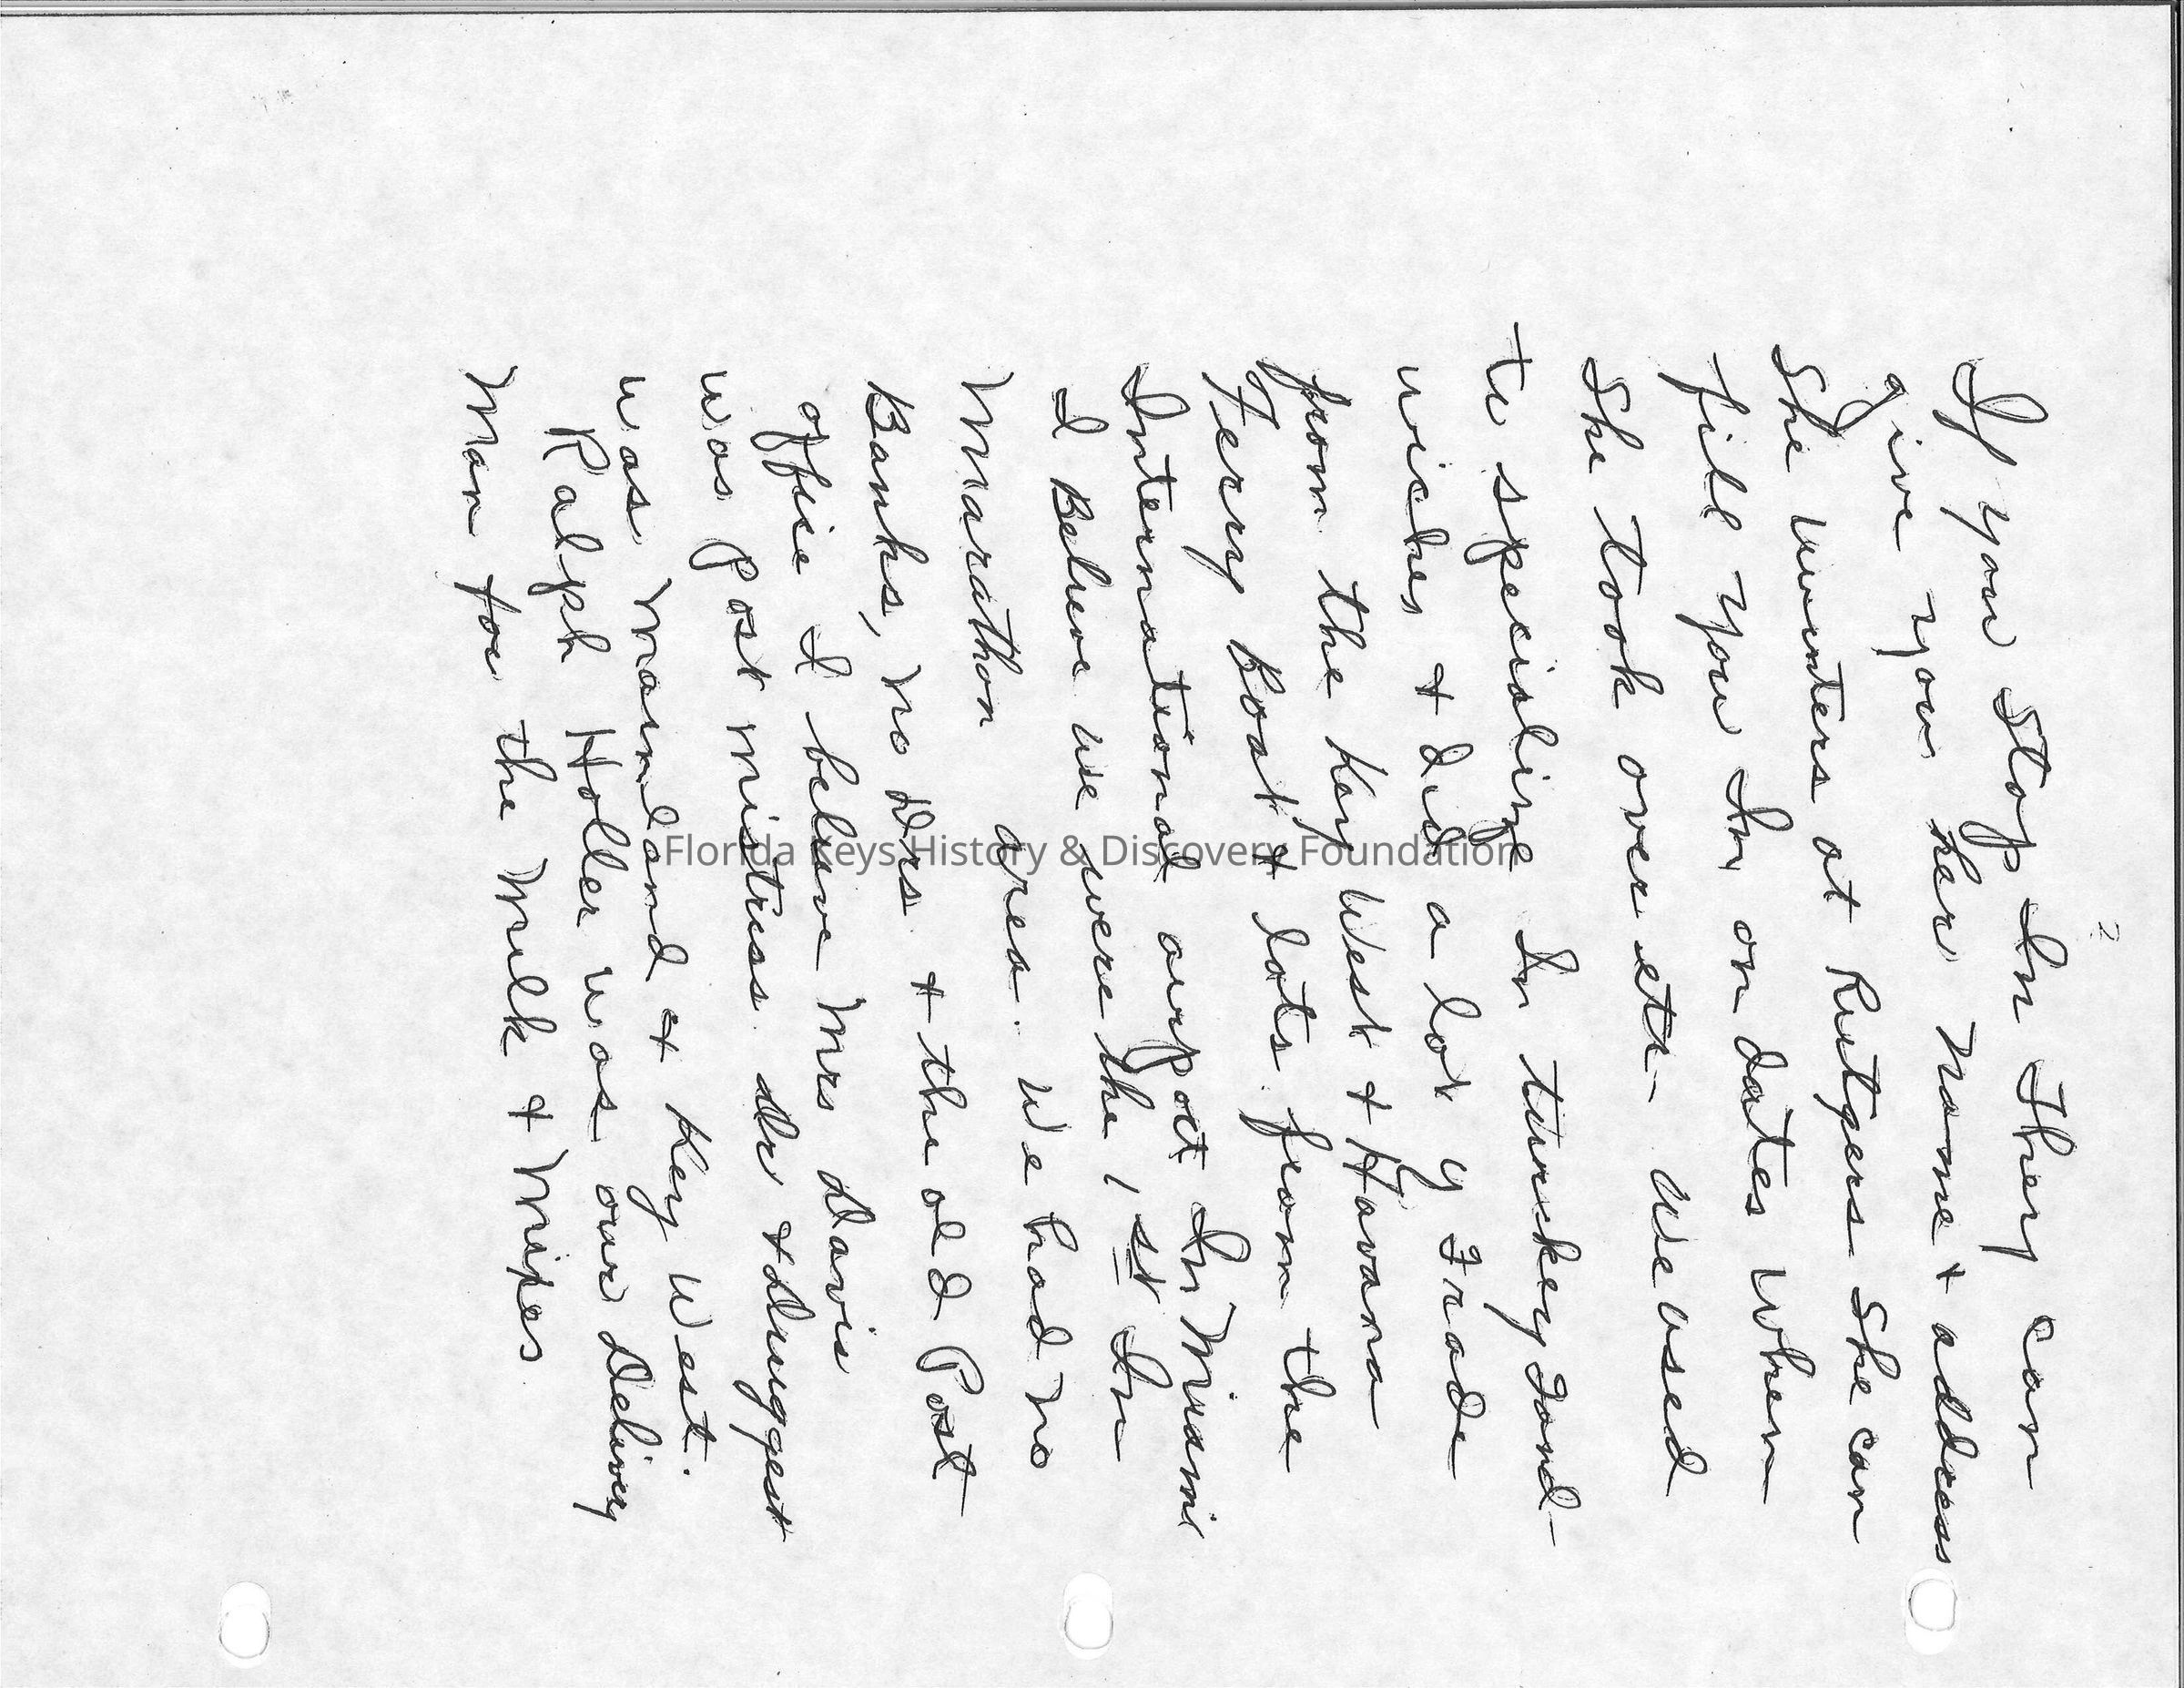 2
If you stop In They can
give you her Name + address
She winters at Rutgers She can
fill you In on dates when
She took over etc - we used
to specialize In turkey sand-
wiches + did a lot of Trade
from the Key West + Havana
Ferry Boat + lots from the
International airport In Miami
I Believe we were the 1st In
Marathon area. We had no
Banks, no Drs. + the old Post
office I believe Mrs Davis
was Post mistress. Dr + Druggest
was mainland + Key West.
Ralph Holler was our Delivery
Man for the Milk + Mixes
Florida Keys History & Discovery Foundation